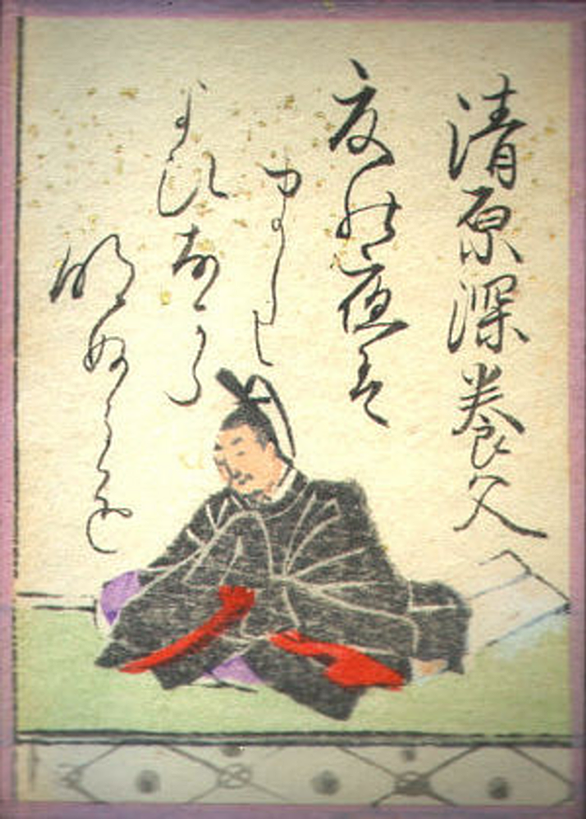 清原深養父
夏の夜は
まだ
よひなから
明ぬるを